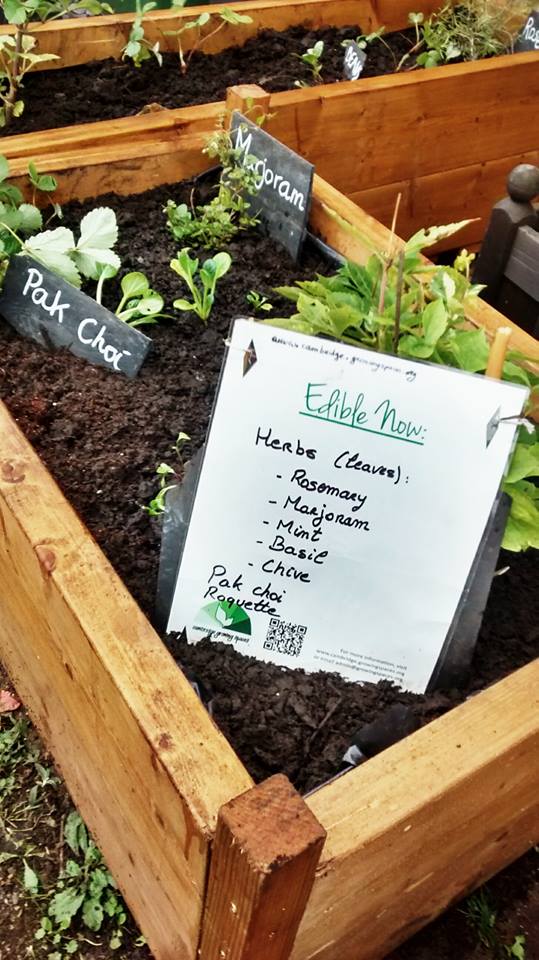 Marjoram
Pak Choi
www.cambridge.growingspaces.org
Edible Now:
Herbs (leaves):
- Rosemary
- Marjoram
- Mint
- Basil
- Chive
Pak choi
Roquette
cambridge growing spaces
For more information, visit
www.cambridge.growingspaces.org
or email admin@growingspaces.org